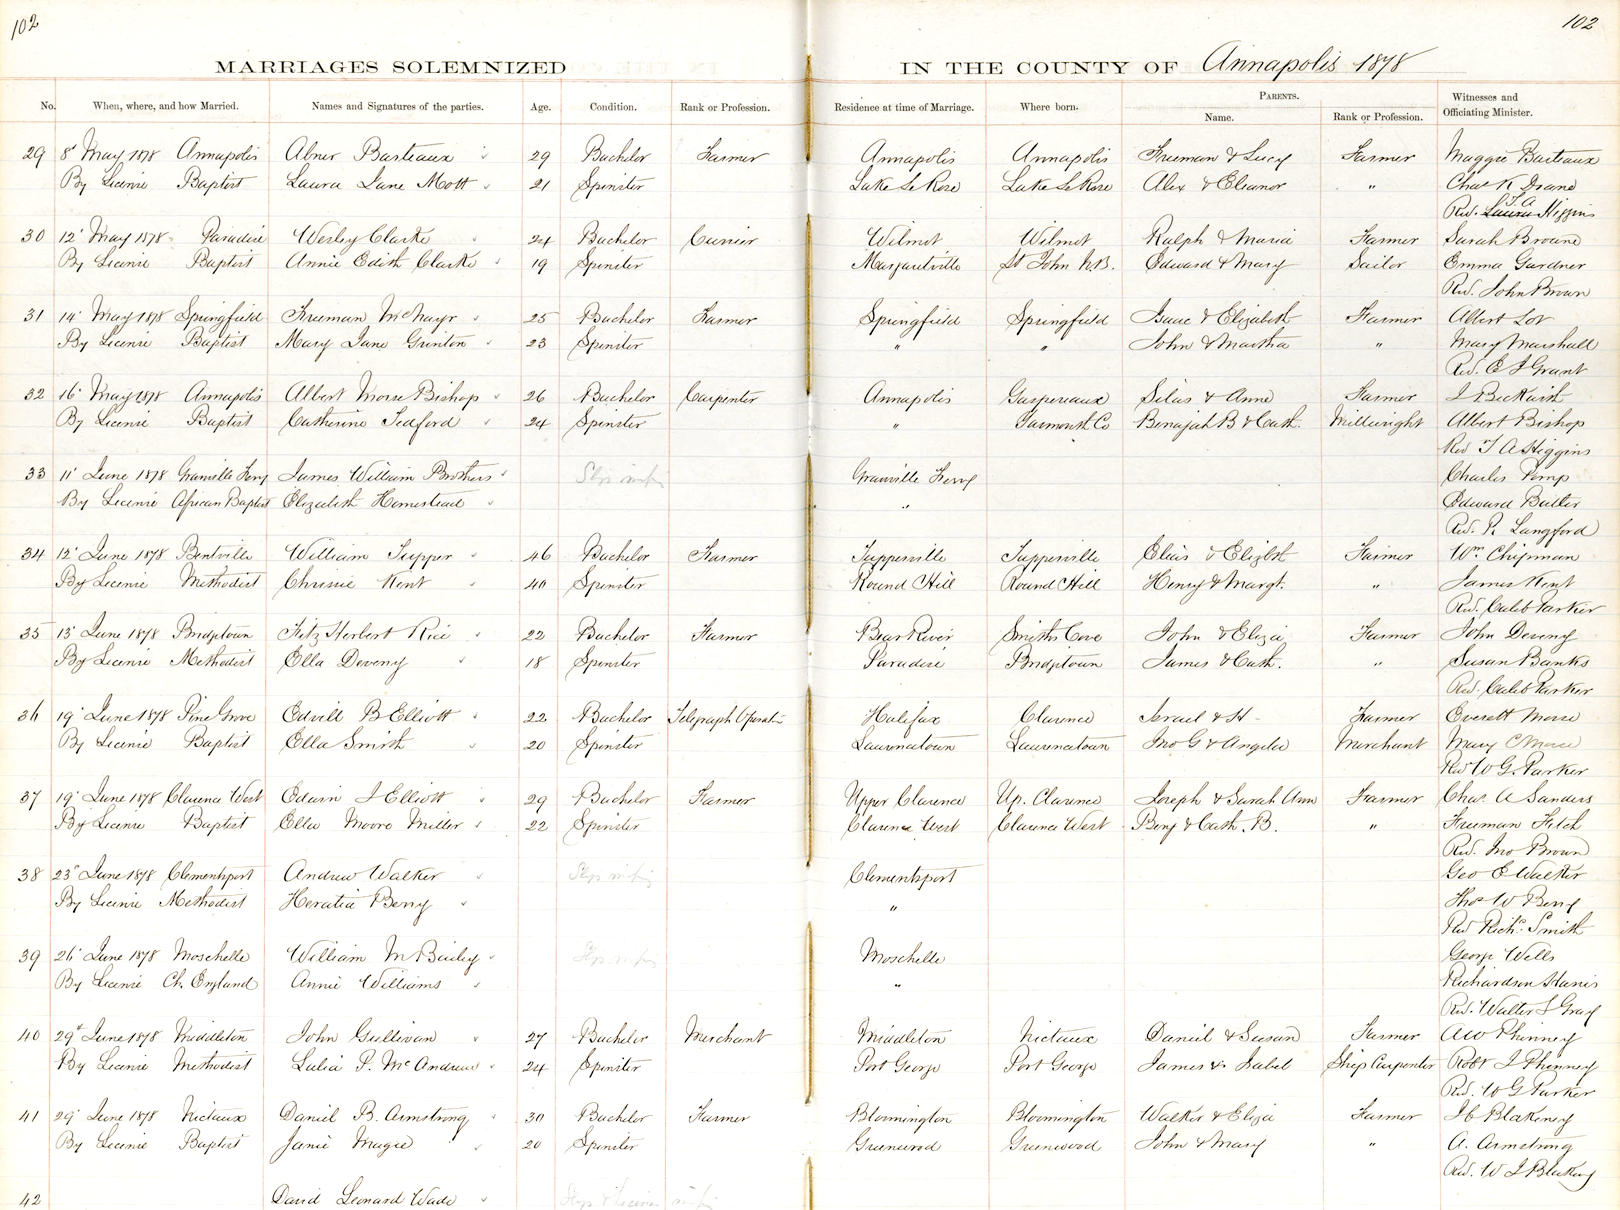 102
102
MARRIAGES SOLEMNIZED IN THE COUNTY OF Annapolis 1878
No. When, where, and how Married. Names and Signatures of the parties. Age. Condition. Rank or Profession. Residence at time of Marriage. Where born. PARENTS. Name. Rank or Profession. Witnesses and Officiating Minister.
29 8' May 1878 Annapolis Abner Barteaux 29 Bachelor Farmer Annapolis Annapolis Freeman & Lucy Farmer Maggie Barteaux
By License Baptist Laura Jane Mott 21 Spinster Lake Le Rose Lake Le Rose Alex & Eleanor " Chas K
Rev. T A Higgins
30 12' May 1878 Paradise Wesley Clarke 24 Bachelor Currier Wilmot Wilmot Ralph & Maria Farmer Sarah Browne
By License Baptist Annie Edith Clarke 19 Spinster Margaretville St John N.B. Edward & Mary Sailor Emma Gardner
Rev. John Brown
31 14' May 1878 Springfield Freeman McNayr 25 Bachelor Farmer Springfield Springfield Isaac & Elizabeth Farmer Albert
By License Baptist Mary Jane Grinton 23 Spinster " " John & Martha " Mary Marshall
Rev. E J Grant
32 16' May 1878 Annapolis Albert Morse Bishop 26 Bachelor Carpenter Annapolis Gaspereaux Silas & Anne Farmer J Beckwith
By License Baptist Catherine Tedford 24 Spinster " Yarmouth Co Benajah B & Cath. Millwright Albert Bishop
Rev T A Higgins
33 11' June 1878 Granville Ferry James William Brothers Slip missing Granville Ferry Charles Pomp
By License African Baptist Elizabeth Homestead " Edward Butler
Rev. P. Langford
34 12' June 1878 Bentville William Tupper 46 Bachelor Farmer Tupperville Tupperville Elias & Elizbth Farmer Wm. Chipman
By License Methodist Chrissie Kent 40 Spinster Round Hill Round Hill Henry & Margt. " James Kent
Rev. Caleb Parker
35 13' June 1878 Bridgetown Fitz Herbert Rice 22 Bachelor Farmer Bear River Smiths Cove John & Eliza Farmer John Deveny
By License Methodist Ella Deveny 18 Spinster Paradise Bridgetown James & Cath. " Susan Banks
Rev. Caleb Parker
36 19' June 1878 Pine Grove Edvill B Elliott 22 Bachelor Telegraph Operator Halifax Clarence Israel & H - Farmer Everett Morse
By License Baptist Ella Smith 20 Spinster Laurencetown Laurencetown Jno G & Angelia Merchant Mary C Morse
Rev W G. Parker
37 19' June 1878 Clarence West Edwin J Elliott 29 Bachelor Farmer Upper Clarence Up. Clarence Joseph & Sarah Ann Farmer Chas. A Sanders
By License Baptist Ella Moore Miller 22 Spinster Clarence West Clarence West Benj & Cath. B. " Freeman Fitch
Rev. Jno Brown
38 23' June 1878 Clementsport Andrew Walker Slip missing Clementsport Geo E Walker
By License Methodist Heratia Berry " Thos W Berry
Rev Richd. Smith
39 26' June 1878 Moschelle William M Bailey Slip missing Moschelle George Wells
By License Ch. England Annie Williams " Richardson Harris
Rev. Walter S Gray
40 29' June 1878 Middleton John Gullivan 27 Bachelor Merchant Middleton Nictaux Daniel & Susan Farmer A W Phinney
By License Methodist Lulia P. McAndrew 24 Spinster Port George Port George James & Isabel Ship Carpenter Robt J Phinney
Rev. W G Parker
41 29' June 1878 Nictaux Daniel B. Armstrong 30 Bachelor Farmer Bloomington Bloomington Walker & Eliza Farmer Blakeney
By License Baptist Janie Magee 20 Spinster Greenwood Greenwood John & Mary " A. Armstrong
Rev. W J Blakeny
42 David Leonard Wade Slip & License missing